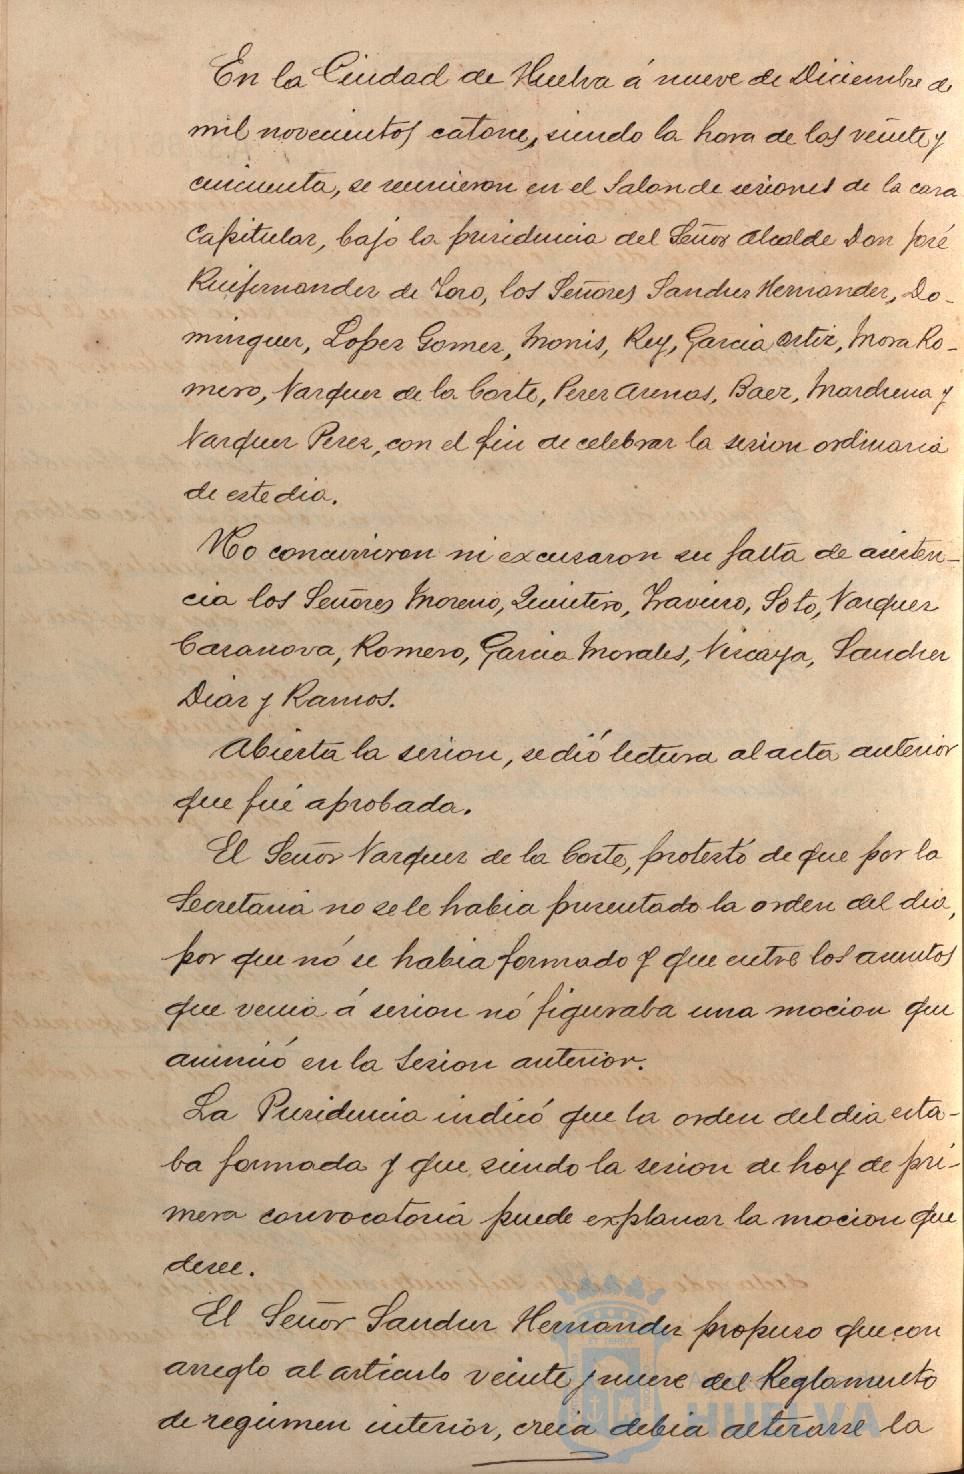 En la Ciudad de Huelva á nueve de Diciembre de
mil novecientos catorce, siendo la hora de las veinte y
cincuenta, se reunieron en el Salon de sesiones de la casa
Capitular, bajo la presidencia del Señor Alcalde Don José
Ruifernandez de Toro, los Señores Sanchez Hernandez, Do-
minguez, Lopez Gomez, Monis, Rey, Garcia Ortiz, Mora Ro-
mero, Vazquez de la Corte, Perez Arenas, Baez, Marchena y
Vazquez Perez, con el fin de celebrar la sesion ordinaria
de este dia.
No concurrieron ni excusaron su falta de asisten-
cia los Señores Moreno, Quintero, Travieso, Soto, Vazquez
Casanova, Romero, Garcia Morales, Viscaya, Sanchez
Diaz y Ramos.
Abierta la sesion, se dió lectura al acta anterior
que fué aprobada.
El Señor Vazquez de la Corte, protestó de que por la
Secretaria no se le habia presentado la orden del dia,
por que nó se habia formado y que entre los asuntos
que venia á sesion nó figuraba una mocion que
anunció en la Sesion anterior.
La Presidencia indicó que la orden del dia esta-
ba formada y que siendo la sesion de hoy de pri-
mera convocatoria puede explanar la mocion que
desee.
El Señor Sanchez Hernandez propuso que con
arreglo al articulo veinte y nueve del Reglamento
de regimen interior, creia debia alterarse la
HUELVA